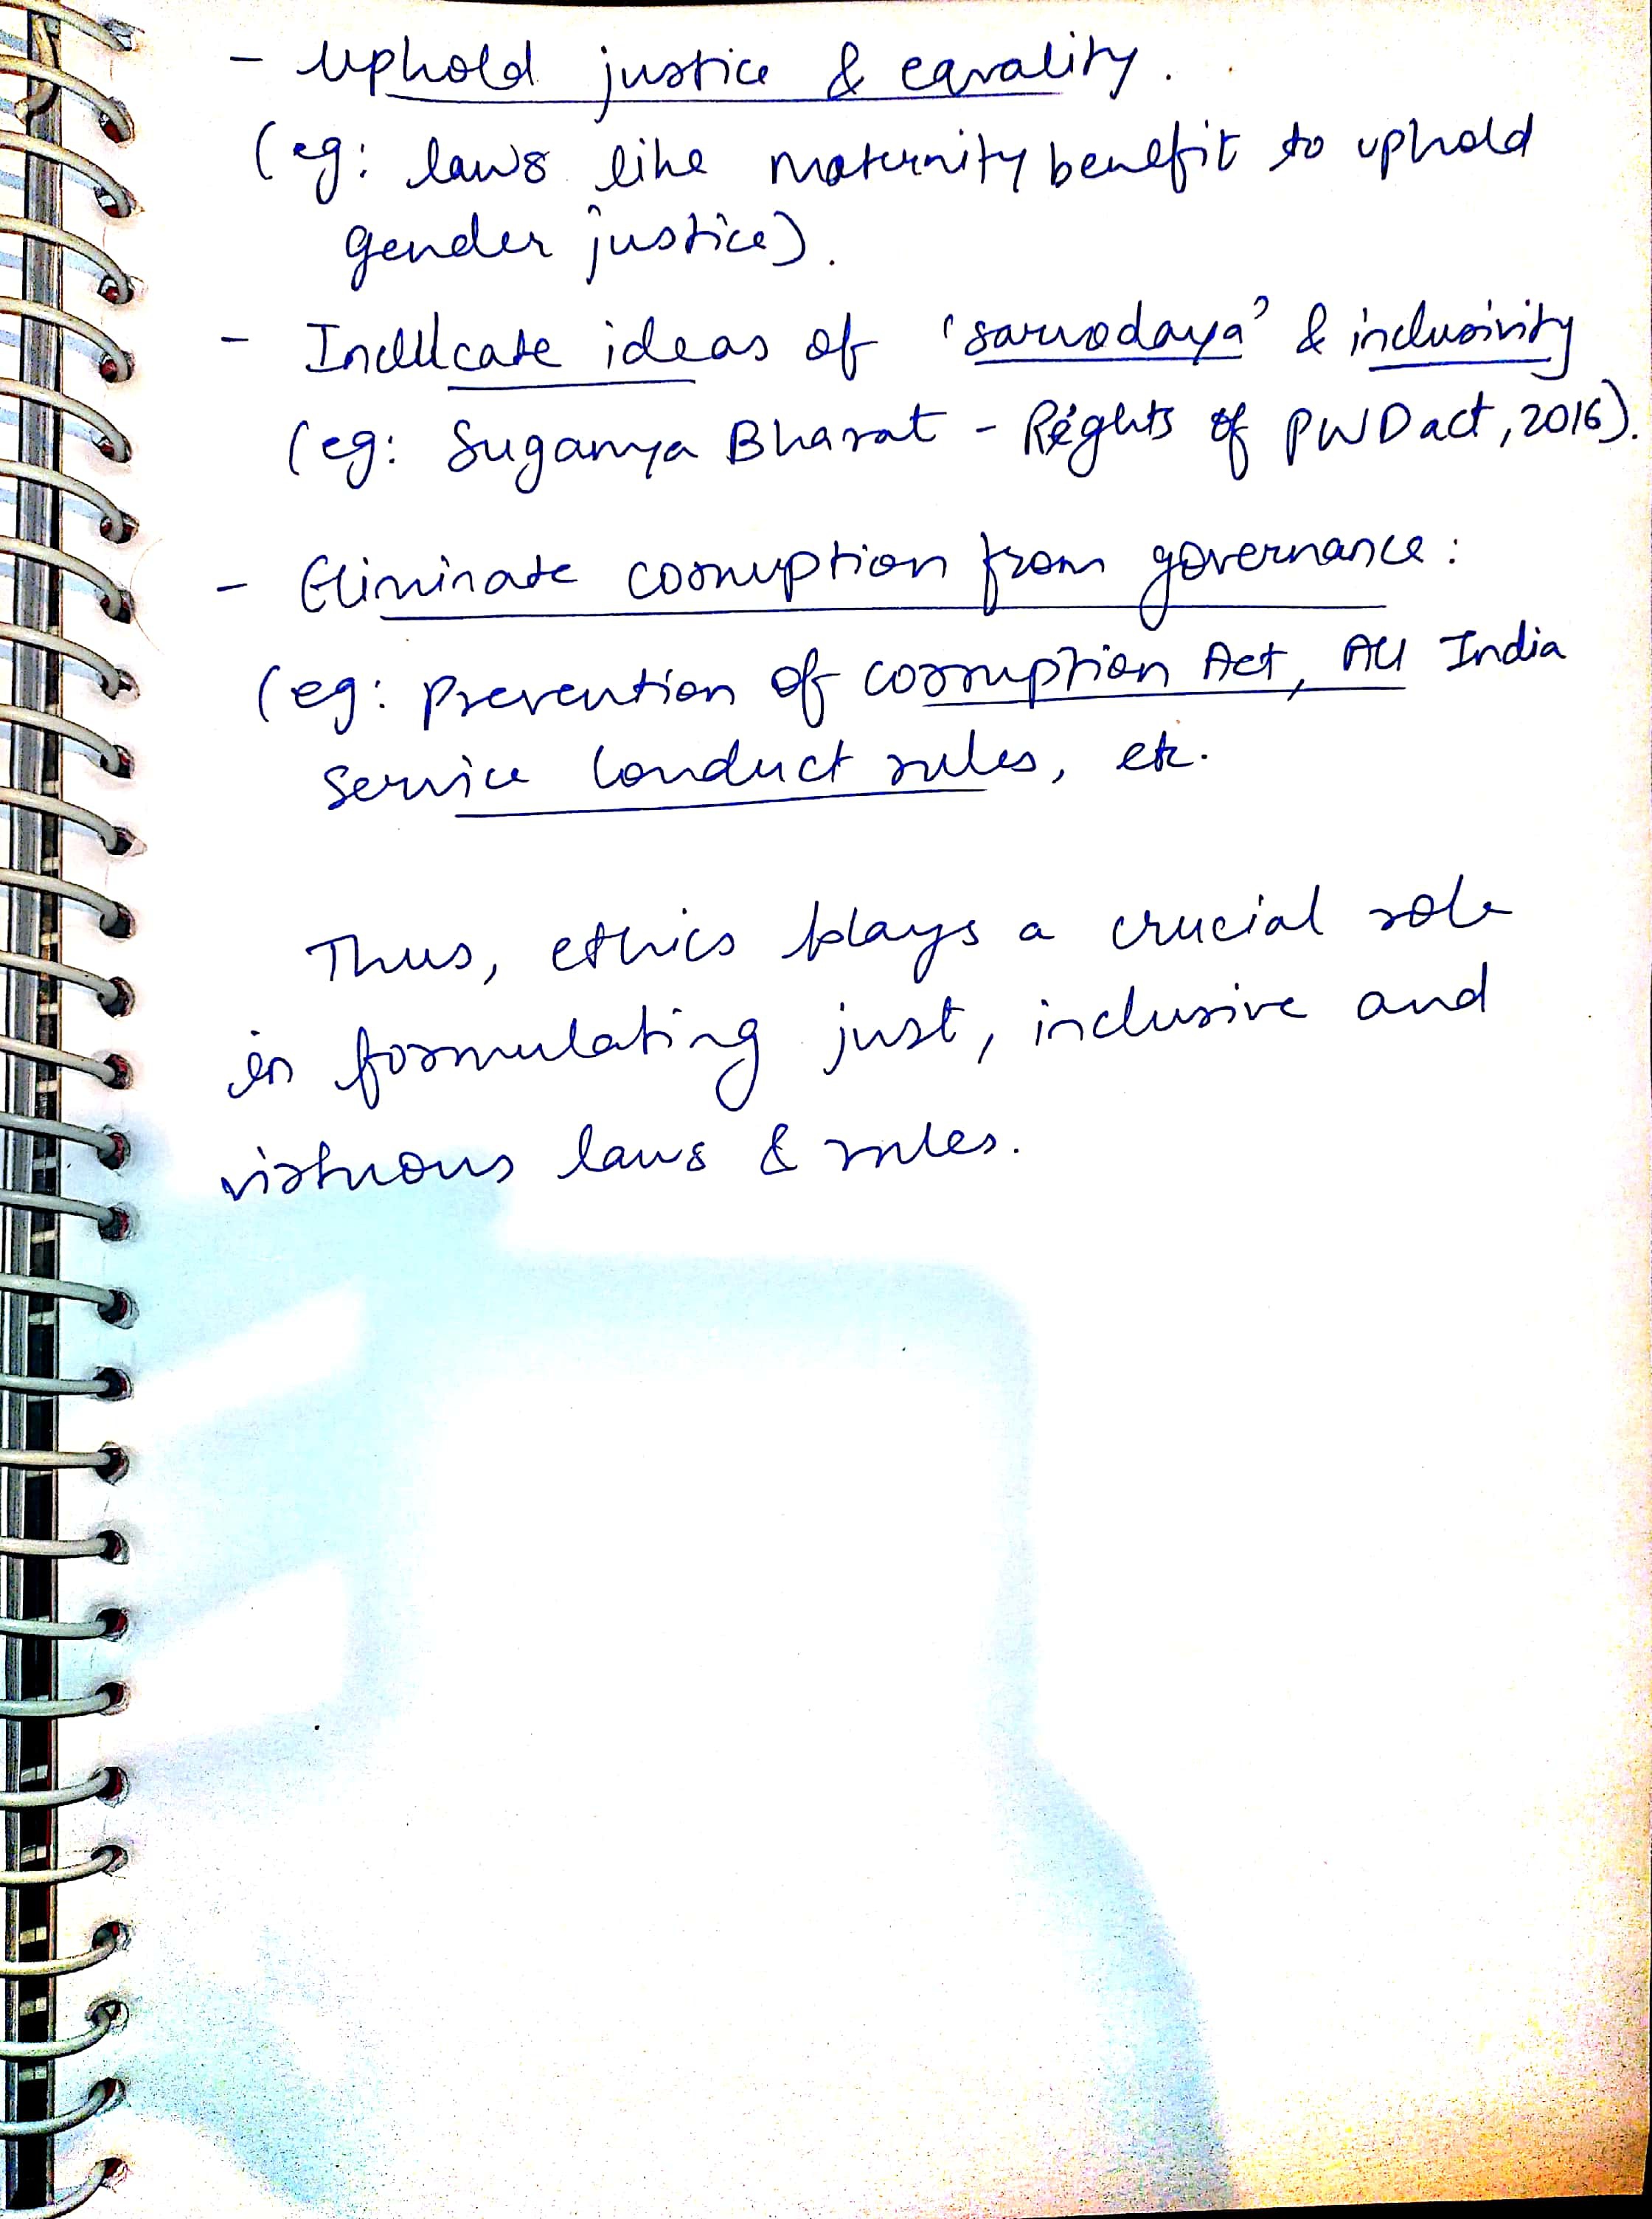 - Uphold justice & equality.
(eg: laws like maternity benefit to uphold
gender justice).
- Inculcate ideas of 'sarvodaya' & inclusivity
(eg: Sugamya Bharat - Rights of PWD act, 2016).
- Eliminate corruption from governance:
(eg: Prevention of corruption Act, All India
Service Conduct rules, etc.
Thus, ethics plays a crucial role
in formulating just, inclusive and
virtuous laws & rules.